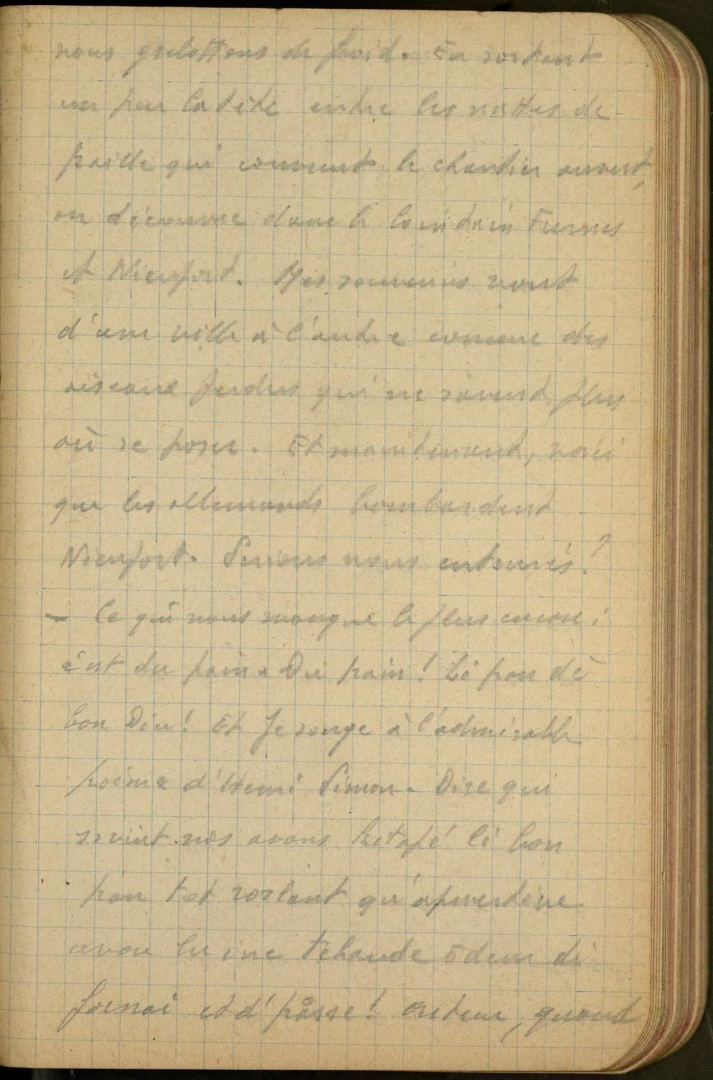 nous grelottons de froid. En sortant
un peu la tête entre les nattes de
paille qui couvrent le chantier ouvert,
on découvre dans le lointain Furnes
et Nieuport. Mes souvenirs vont
d'une ville à l'autre comme des
oiseaux perdus qui ne savent plus
où se poser. Et maintenant, voici
que les allemands bombardent
Nieuport. Serions nous entourés?
- Ce qui nous manque le plus encore:
c'est du pain. Du pain! Li pan dè
bon Diu! Et je songe à l'admirable
poème d'Henri Simon. Dire qui
sovint nos avans hetapé li bon
pan tot roslant qu'apwerteve
avou lu ine tchaude ôdeur di
fornai et d' påsse! Asteur, quand